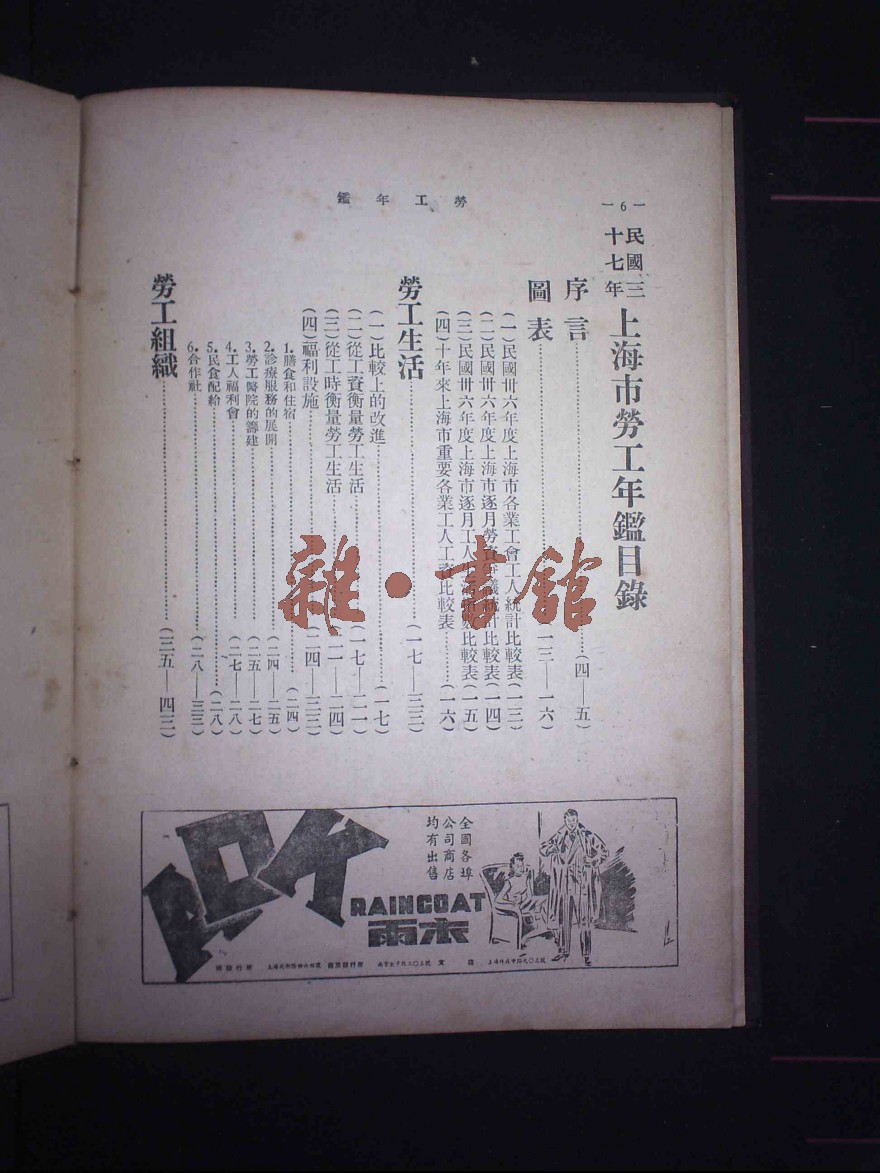 勞工年鑑
—6—
民國三十七年
上海市勞工年鑑目錄
序言………(四—五)
圖表………(一三—一六)
(一)民國卅六年度上海市各業工會工人統計比較表(一三)
(二)民國卅六年度上海市逐月勞資爭議統計比較表(一四)
(三)民國卅六年度上海市逐月工人生活指數比較表(一五)
(四)十年來上海市重要各業工人工資比較表………(一六)
勞工生活………(一七—三三)
(一)比較上的改進………(一七)
(二)從工資衡量勞工生活………(一七—二一)
(三)從工時衡量勞工生活………(二一—二四)
(四)福利設施………(二四—三三)
1.膳食和住宿………(二四)
2.診療服務的展開………(二四—二五)
3.勞工醫院的籌建………(二五—二七)
4.工人福利會………(二七—二八)
5.民食配給………(二八)
6.合作社………(二八—三三)
勞工組織………(三五—四三)
雜·書館
全國各埠
公司商店
均有出售
ADK
RAINCOAT
雨衣